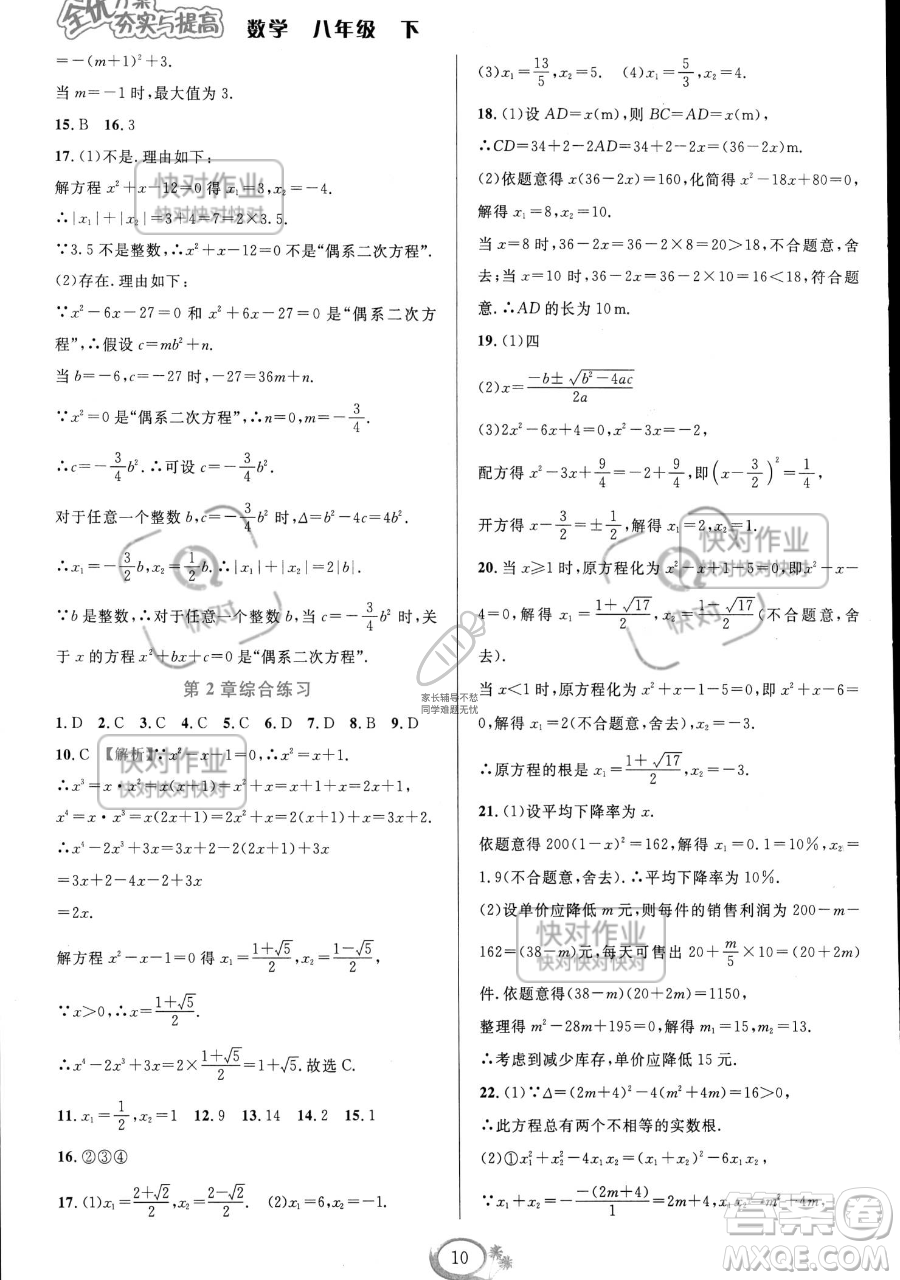 全优方案
夯实与提高
数学 八年级 下
=-(m+1)²+3.
当 m=-1 时,最大值为 3.
15.B 16.3
17.(1)不是.理由如下:
解方程 x²+x-12=0 得 x₁=3,x₂=-4.
∴|x₁|+|x₂|=3+4=7=2×3.5.
∵3.5 不是整数,∴x²+x-12=0 不是“偶系二次方程”.
(2)存在.理由如下:
∵x²-6x-27=0 和 x²+6x-27=0 是“偶系二次方
程”,∴假设 c=mb²+n.
当 b=-6,c=-27 时,-27=36m+n.
∵x²=0 是“偶系二次方程”,∴n=0,m=-3/4.
∴c=-3/4b².∴可设 c=-3/4b².
对于任意一个整数 b,c=-3/4b² 时,Δ=b²-4c=4b².
∴x₁=-3/2b,x₂=1/2b.∴|x₁|+|x₂|=2|b|.
∵b 是整数,∴对于任意一个整数 b,当 c=-3/4b² 时,关
于 x 的方程 x²+bx+c=0 是“偶系二次方程”.
第 2 章综合练习
1.D 2.C 3.C 4.C 5.C 6.D 7.D 8.B 9.D
10.C 【解析】∵x²-x-1=0,∴x²=x+1.
∴x³=x·x²=x(x+1)=2x+1,
x⁴=x·x³=x(2x+1)=2x²+x=3x+2.
∴x⁴-2x³+3x
=3x+2-2(2x+1)+3x
=3x+2-4x-2+3x
=2x.
解方程 x²-x-1=0 得 x₁=(1+√5)/2,x₂=(1-√5)/2.
∵x>0,∴x=(1+√5)/2.
∴x⁴-2x³+3x=2×(1+√5)/2=1+√5.故选 C.
11.x₁=1/2,x₂=1 12.9 13.14 14.2 15.1
16.②③④
17.(1)x₁=(2+√2)/2,x₂=(2-√2)/2. (2)x₁=6,x₂=-1.
(3)x₁=13/5,x₂=5. (4)x₁=5/3,x₂=4.
18.(1)设 AD=x(m),则 BC=AD=x(m),
∴CD=34+2-2AD=34+2-2x=(36-2x)m.
(2)依题意得 x(36-2x)=160,化简得 x²-18x+80=0,
解得 x₁=8,x₂=10.
当 x=8 时,36-2x=36-2×8=20>18,不合题意,舍
去;当 x=10 时,36-2x=36-2×10=16<18,符合题
意.∴AD 的长为 10 m.
19.(1)四
(2)x=(-b±√(b²-4ac))/2a
(3)2x²-6x+4=0,x²-3x=-2,
配方得 x²-3x+9/4=-2+9/4,即(x-3/2)²=1/4,
开方得 x-3/2=±1/2,解得 x₁=2,x₂=1.
20.当 x≥1 时,原方程化为 x²-x+1-5=0,即 x²-x-
4=0,解得 x₁=(1+√17)/2,x₂=(1-√17)/2(不合题意,舍
去).
当 x<1 时,原方程化为 x²+x-1-5=0,即 x²+x-6=
0,解得 x₁=2(不合题意,舍去),x₂=-3.
∴原方程的根是 x₁=(1+√17)/2,x₂=-3.
21.(1)设平均下降率为 x.
依题意得 200(1-x)²=162,解得 x₁=0.1=10%,x₂=
1.9(不合题意,舍去).∴平均下降率为 10%.
(2)设单价应降低 m 元,则每件的销售利润为 200-m-
162=(38-m)元,每天可售出 20+m/5×10=(20+2m)
件.依题意得(38-m)(20+2m)=1150,
整理得 m²-28m+195=0,解得 m₁=15,m₂=13.
∴考虑到减少库存,单价应降低 15 元.
22.(1)∵Δ=(2m+4)²-4(m²+4m)=16>0,
∴此方程总有两个不相等的实数根.
(2)①x₁²+x₂²=(x₁+x₂)²-2x₁x₂.
∵x₁+x₂=-(-(2m+4))/1=2m+4,x₁x₂=m²+4m,
10
快对作业
快对快对快对
快对作业
快对快对快对
快对作业
快对快对快对
快对作业
快对快对快对
快对
快对
家长辅导不愁
同学难题无忧
答案圈
MXQE.COM